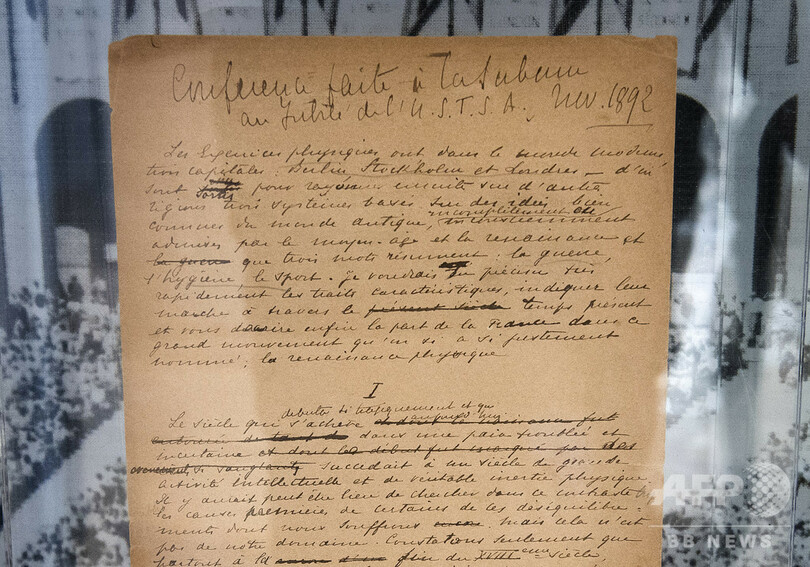 Conférence faite à la Sorbonne
au Jubilé de l'U.S.F.S.A. Nov. 1892
Les Exercices physiques ont dans le monde moderne
trois capitales : Berlin, Stockholm et Londres — d'où
sont sortis pour rayonner ensuite sur d'autres
régions trois systèmes basés sur des idées bien
connues du monde antique, incomplètement et inconsciemment
admises par le moyen-âge et la renaissance et
la guerre que trois mots résument : la guerre,
l'hygiène, le sport. Je voudrais en préciser très
rapidement les traits caractéristiques, indiquer leur
marche à travers le présent siècle temps présent
et vous décrire enfin la part de la France dans ce
grand mouvement qu'on a si justement
nommé : la renaissance physique
I
débuta
Le siècle qui s'achève
dans une paix troublée et
incertaine et dont le début fut marqué par des
événements si sanglants succédait à un siècle de grande
activité intellectuelle et de véritable inertie physique
Il y aurait peut être lieu de chercher dans ce contraste
les causes premières de certains de ces déséquilibre-
ments dont nous souffrons mais cela n'est
pas de notre domaine. Constatons seulement que
partout à la fin du XVIIIème siècle,
AFP
BB NEWS